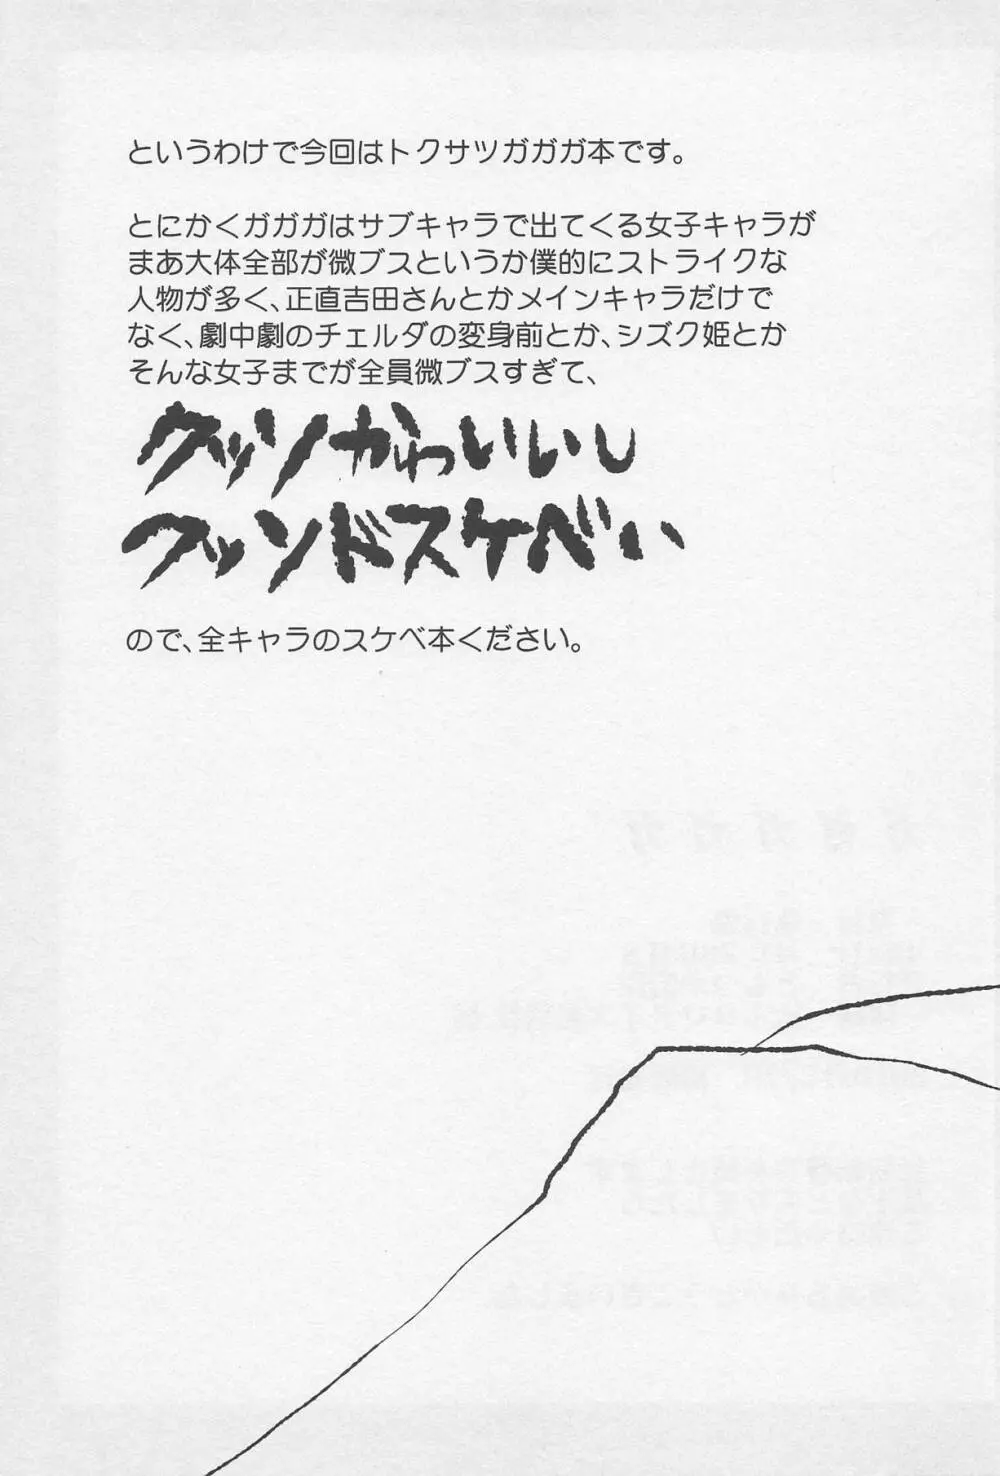 というわけで今回はトクサツガガガ本です。
とにかくガガガはサブキャラで出てくる女子キャラが
まあ大体全部が微ブスというか僕的にストライクな
人物が多く、正直吉田さんとかメインキャラだけで
なく、劇中劇のチェルダの変身前とか、シズク姫とか
そんな女子までが全員微ブスすぎて、
クッソかわいいし
フッンドスケベい
ので、全キャラのスケベ本ください。